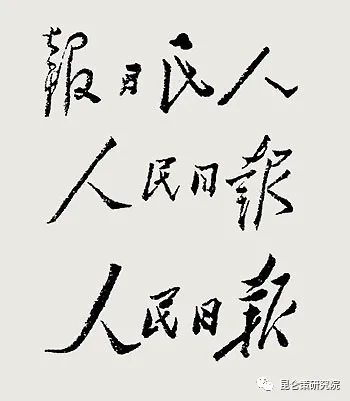 人民日報
人民日報
人民日報
昆仑策研究院